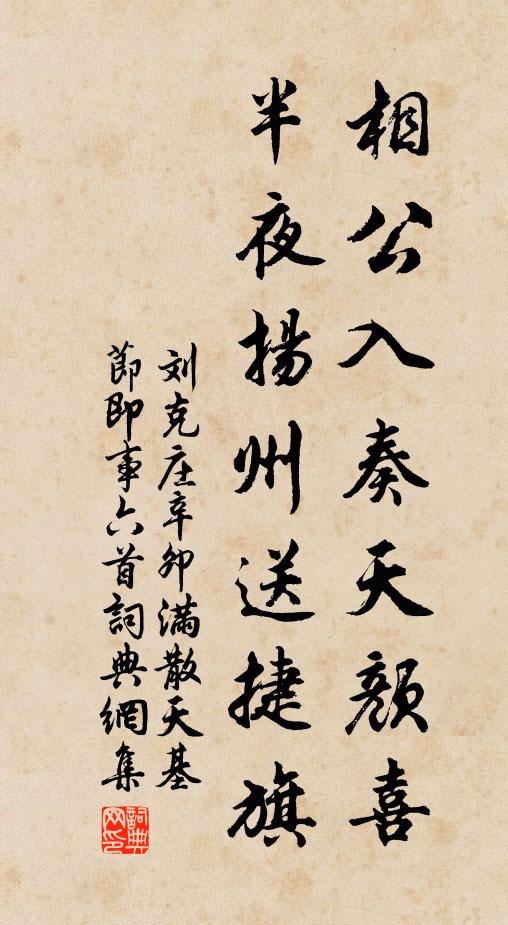 相公入奏天顏喜
半夜揚州送捷旗
刘克庄辛卯滿散天基
節即事六首詞典網集
詞典网印